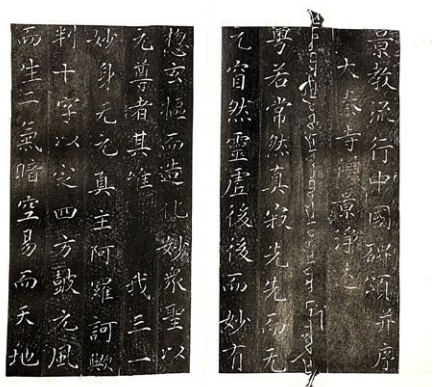 景教流行中國碑頌并序
大秦寺僧景淨述
粵若常然真寂先先而无
元窅然靈虛後後而妙有
惣玄樞而造化妙衆聖以
元尊者其唯 我三一
妙身无元真主阿羅訶歟
判十字以定四方鼓元風
而生二氣暗空易而天地